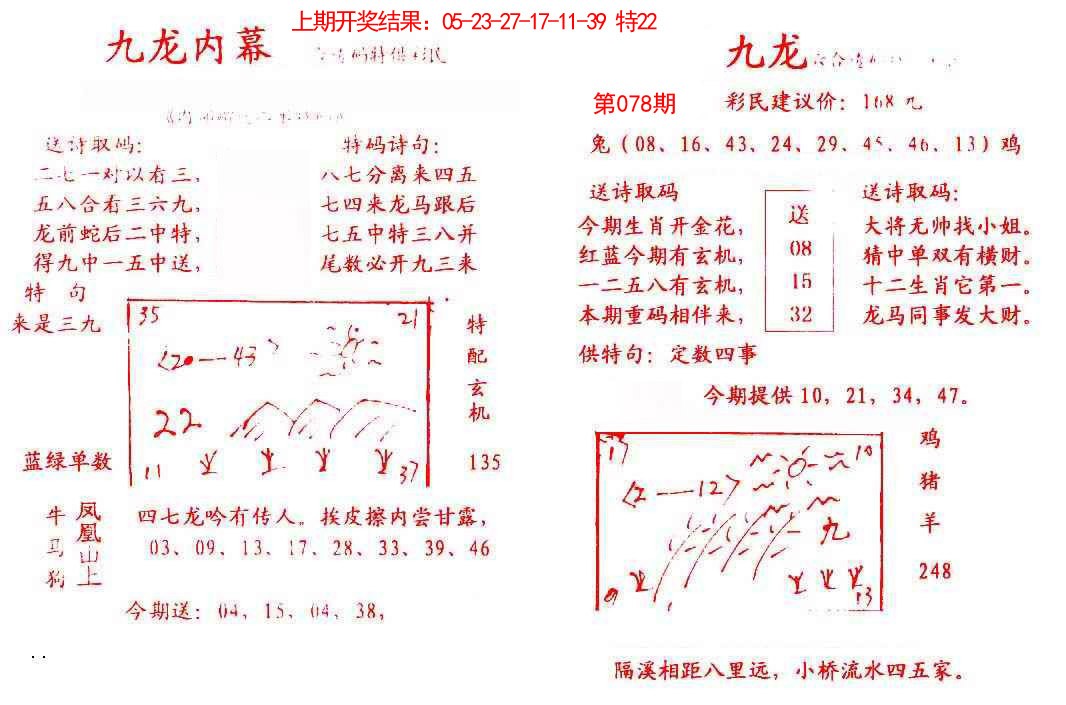 上期开奖结果：05-23-27-17-11-39 特22
九龙内幕
送诗取码：
二七一对以看三，
五八合看三六九，
龙前蛇后二中特，
得九中一五中送，
特码诗句：
八七分离来四五
七四来龙马跟后
七五中特三八并
尾数必开九三来
特 句
来是三九
蓝绿单数
35 21
〈20——43〉
22
11 37
特
配
玄
机
135
牛
马
狗
凤凰山上
四七龙吟有传人。挨皮擦内尝甘露，
03、09、13、17、28、33、39、46
今期送：04，15、04，38，
九龙
第078期 彩民建议价：168 元
兔（08、16、43、24、29、45、46、13）鸡
送诗取码
今期生肖开金花，
红蓝今期有玄机，
一二五八有玄机，
本期重码相伴来，
送
08
15
32
送诗取码：
大将无帅找小姐。
猜中单双有横财。
十二生肖它第一。
龙马同事发大财。
供特句：定数四事
今期提供 10，21，34，47。
10
〈2——12〉
九
13
鸡
猪
羊
248
隔溪相距八里远，小桥流水四五家。